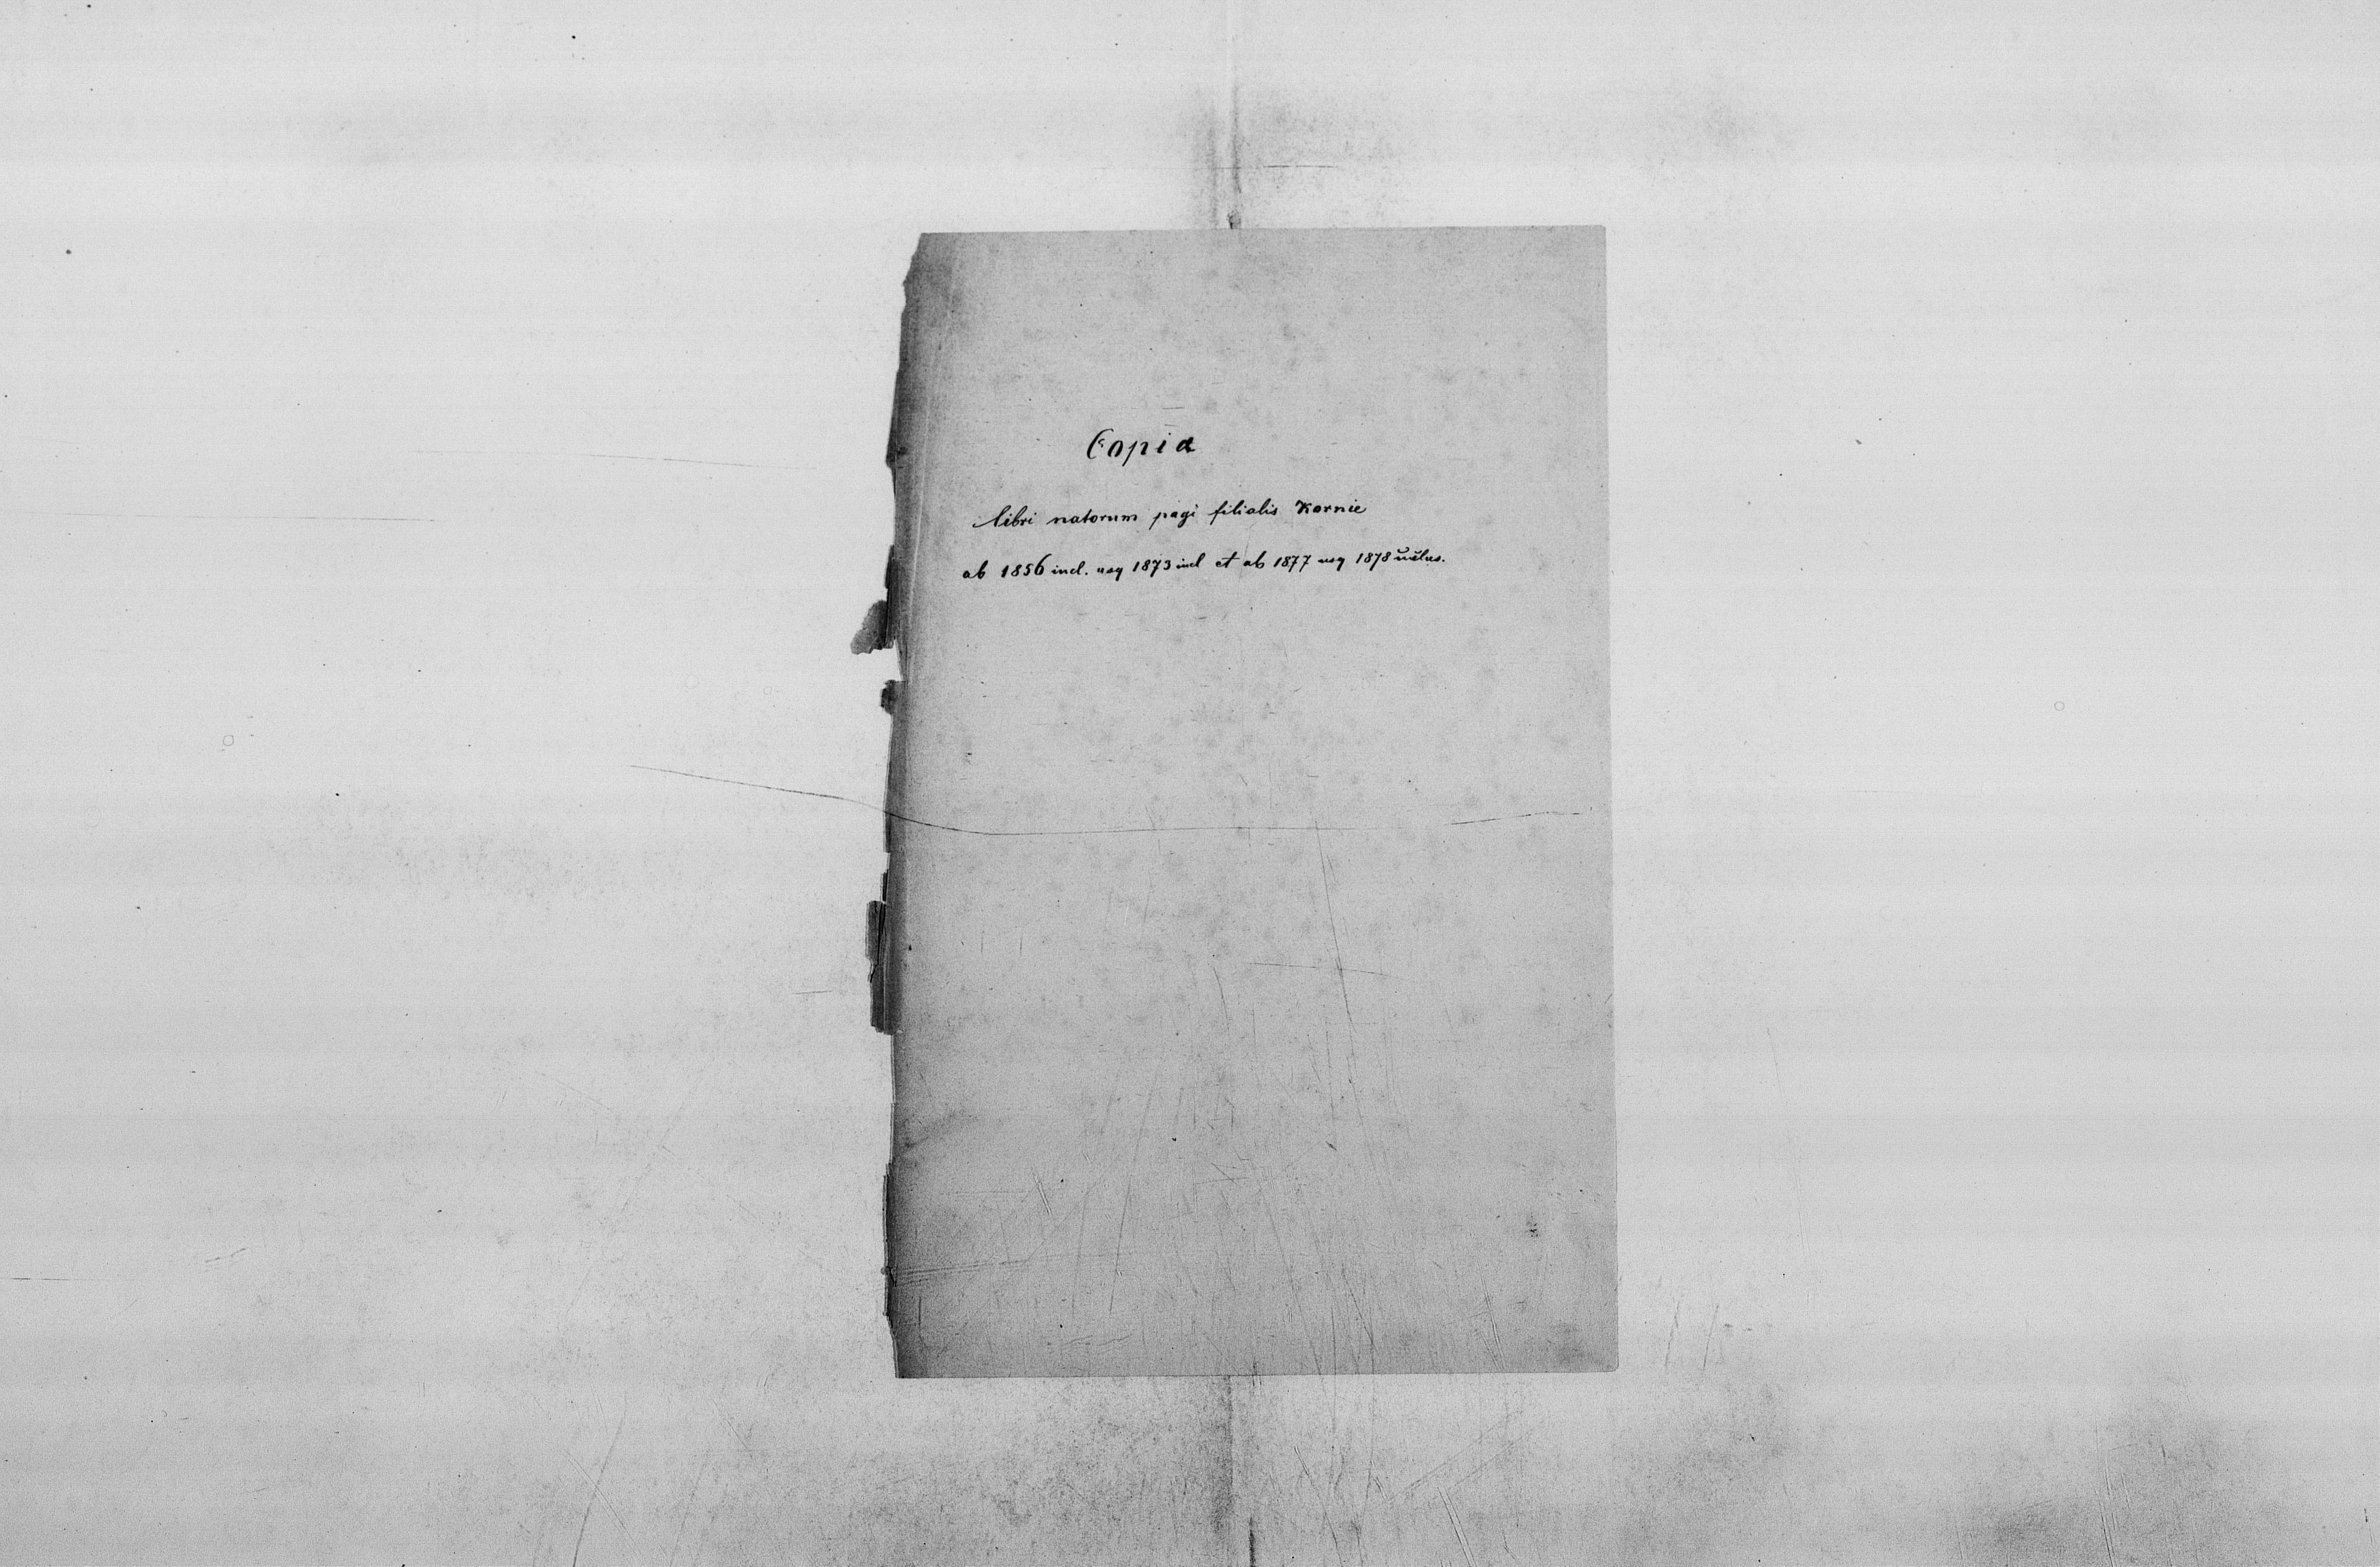 Copia
libri natorum pagi filialis Kornie
ab 1856 incl. usq 1873 incl et ab 1877 usq 1878